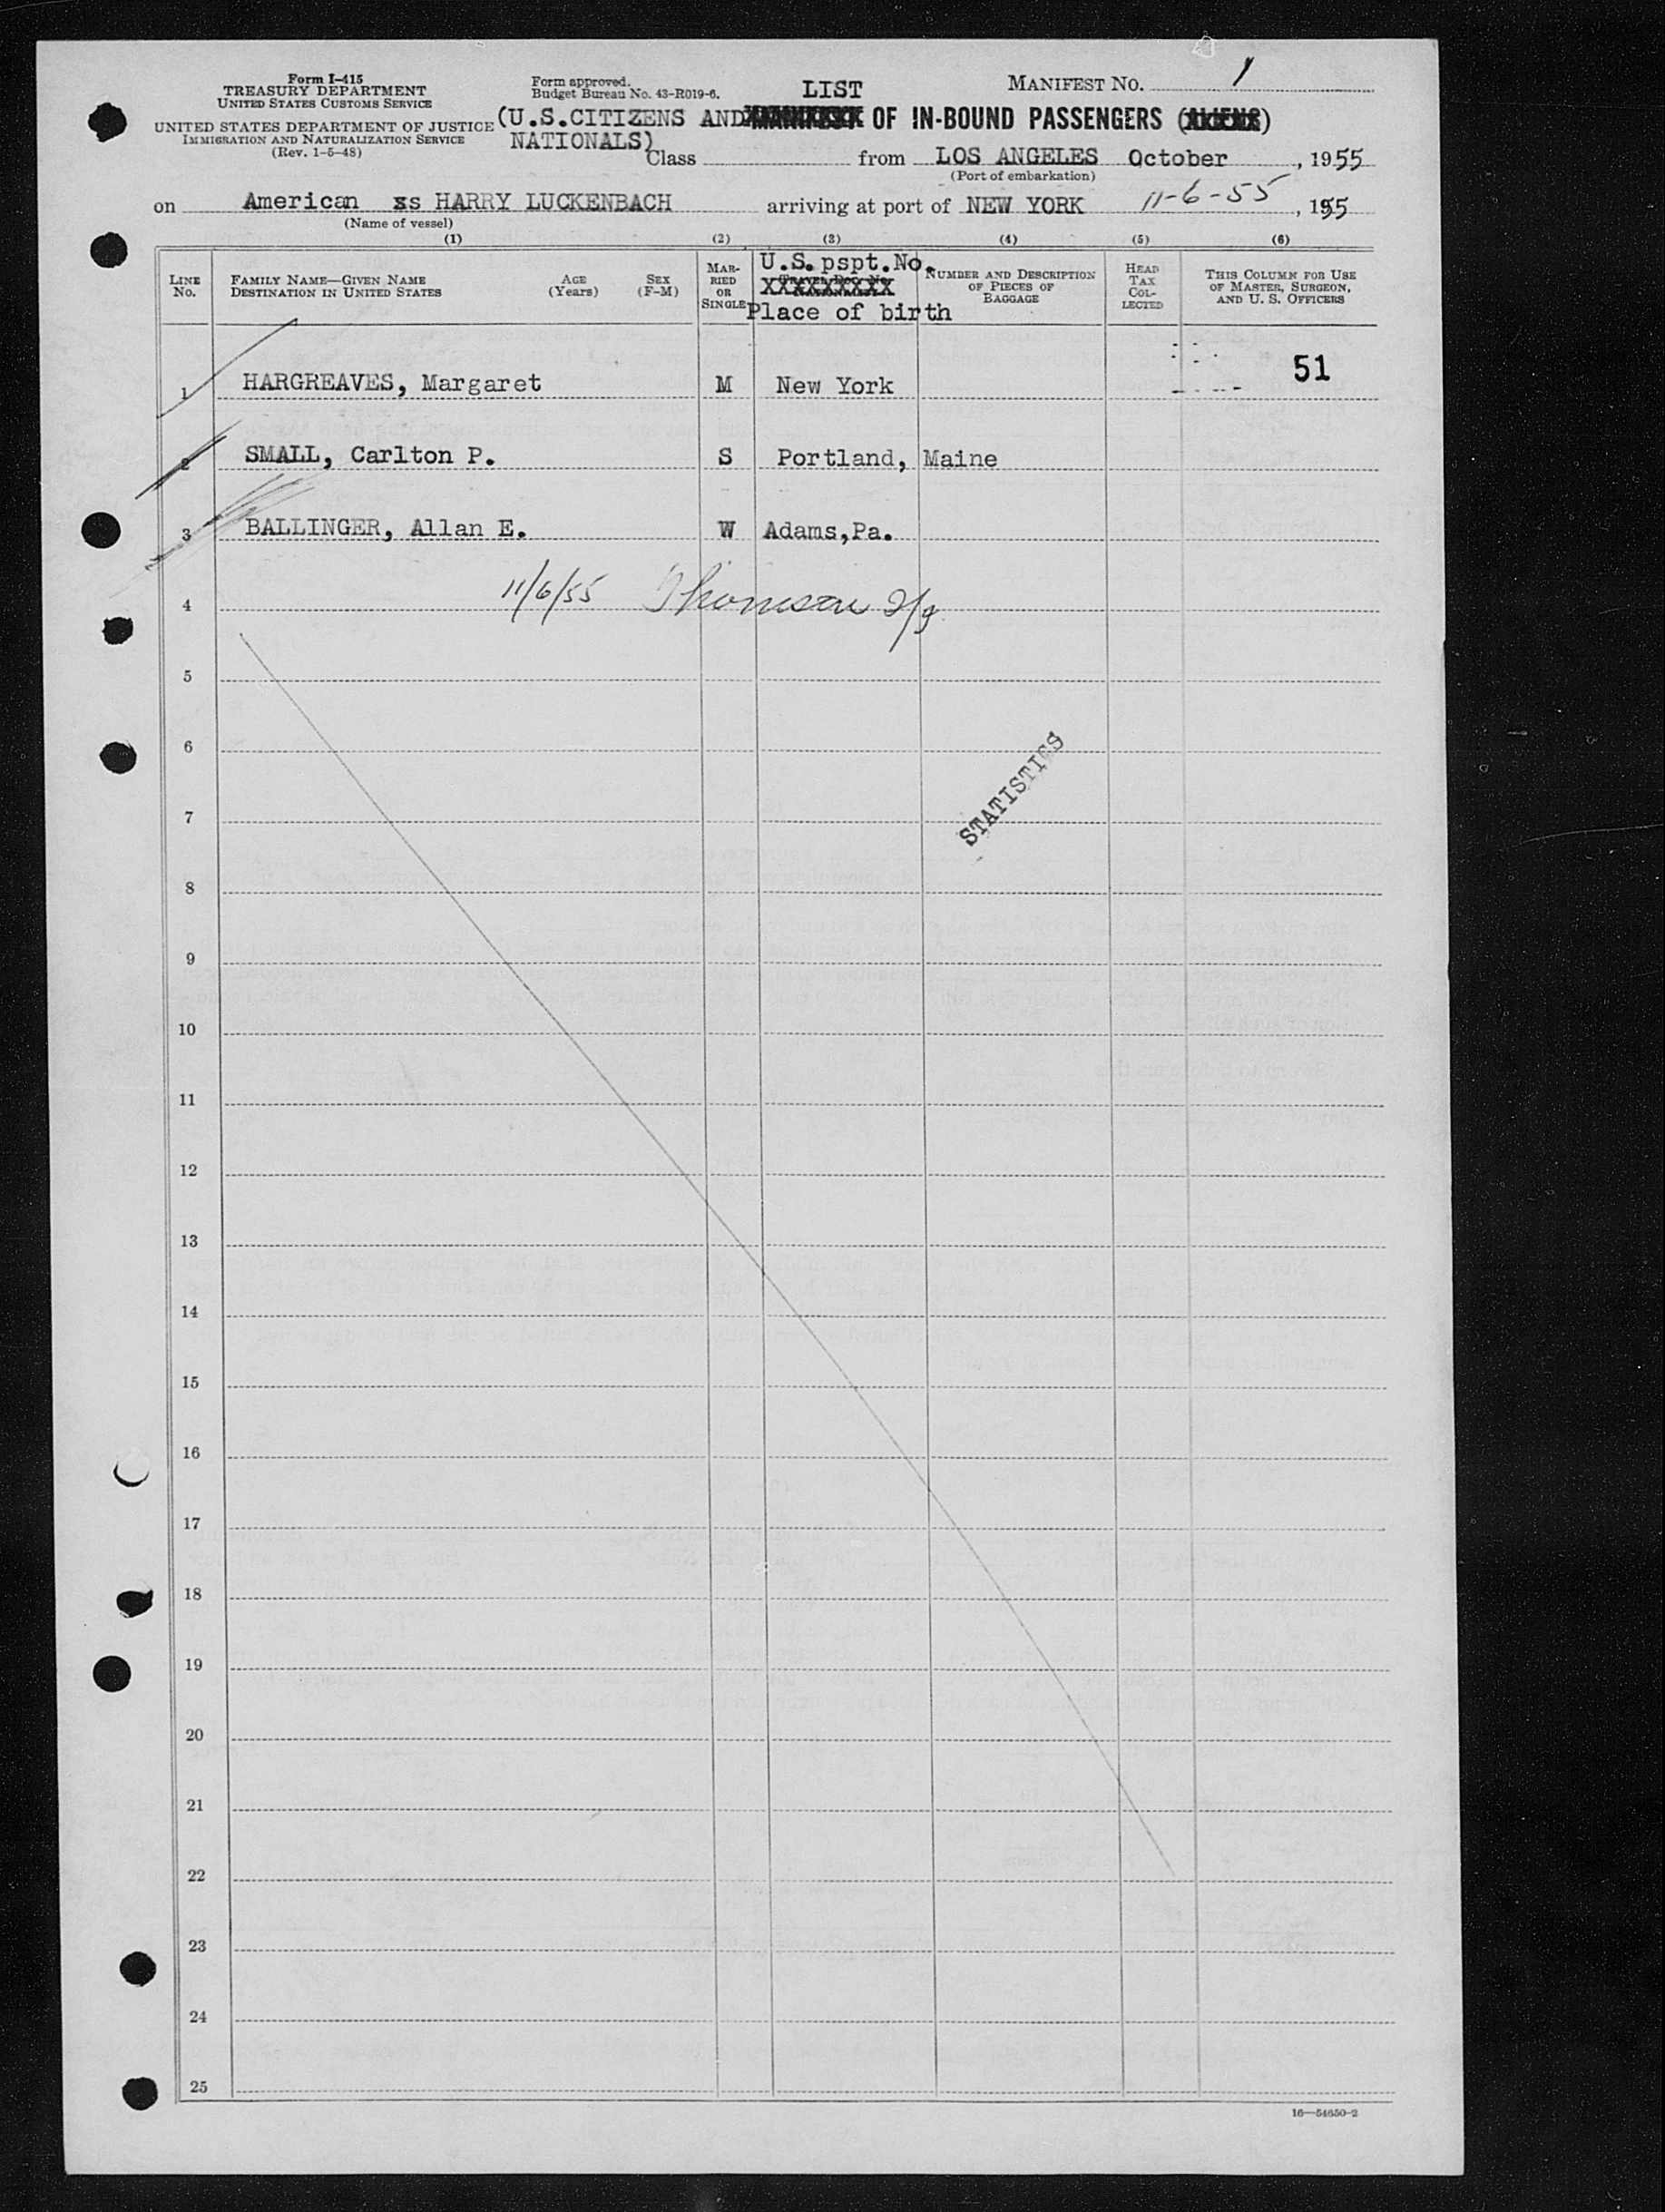 Form I-415
TREASURY DEPARTMENT
UNITED STATES CUSTOMS SERVICE
UNITED STATES DEPARTMENT OF JUSTICE
IMMIGRATION AND NATURALIZATION SERVICE
(Rev. 1-5-48)
Form approved.
Budget Bureau No. 43-R019-6.
LIST
MANIFEST NO. 1
(U.S.CITIZENS AND OF IN-BOUND PASSENGERS (ALIENS)
NATIONALS)
Class from LOS ANGELES October, 1955
(Port of embarkation)
on American ss HARRY LUCKENBACH arriving at port of NEW YORK 11-6-55, 1955
(Name of vessel)
(1) (2) (3) (4) (5) (6)
LINE No.
FAMILY NAME—GIVEN NAME
DESTINATION IN UNITED STATES
AGE (Years)
SEX (F-M)
MARRIED OR SINGLE
U.S. pspt.No.
XXXXXXXXX
Place of birth
NUMBER AND DESCRIPTION OF PIECES OF BAGGAGE
HEAD TAX COLLECTED
THIS COLUMN FOR USE OF MASTER, SURGEON, AND U. S. OFFICERS
51
1 HARGREAVES, Margaret M New York
2 SMALL, Carlton P. S Portland, Maine
3 BALLINGER, Allan E. W Adams,Pa.
4 11/6/55 Thomson
5
6
STATISTICS
7
8
9
10
11
12
13
14
15
16
17
18
19
20
21
22
23
24
25
16—54650-2